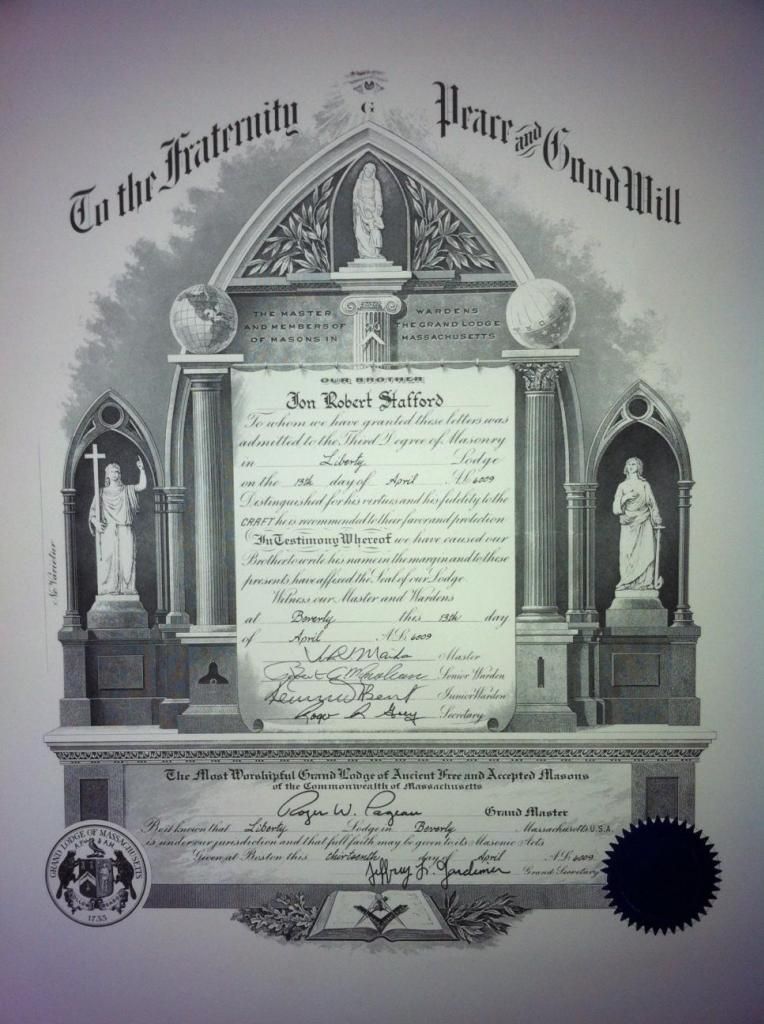 To the Fraternity Peace and Good Will
G
THE MASTER WARDENS
AND MEMBERS OF THE GRAND LODGE
OF MASONS IN MASSACHUSETTS
OUR BROTHER
Jon Robert Stafford
To whom we have granted these letters was
admitted to the Third Degree of Masonry
in Liberty Lodge
on the 13th day of April A.L. 6009
Distinguished for his virtues and his fidelity to the
CRAFT he is recommended to their favor and protection
In Testimony Whereof we have caused our
Brother to write his name in the margin and to these
presents have affixed the Seal of our Lodge.
Witness our Master and Wardens
at Beverly this 13th day
of April A.L. 6009
Master
Senior Warden
Junior Warden
Roger Secretary
Ne Varietur
The Most Worshipful Grand Lodge of Ancient Free and Accepted Masons
of the Commonwealth of Massachusetts
Roger W. Pageau Grand Master
Be it known that Liberty Lodge in Beverly Massachusetts U.S.A.
is under our jurisdiction and that full faith may be given to its Masonic Acts
Given at Boston this thirteenth day of April A.L. 6009
Jeffrey Grand Secretary
GRAND LODGE OF MASSACHUSETTS
A.F. & A.M.
1733